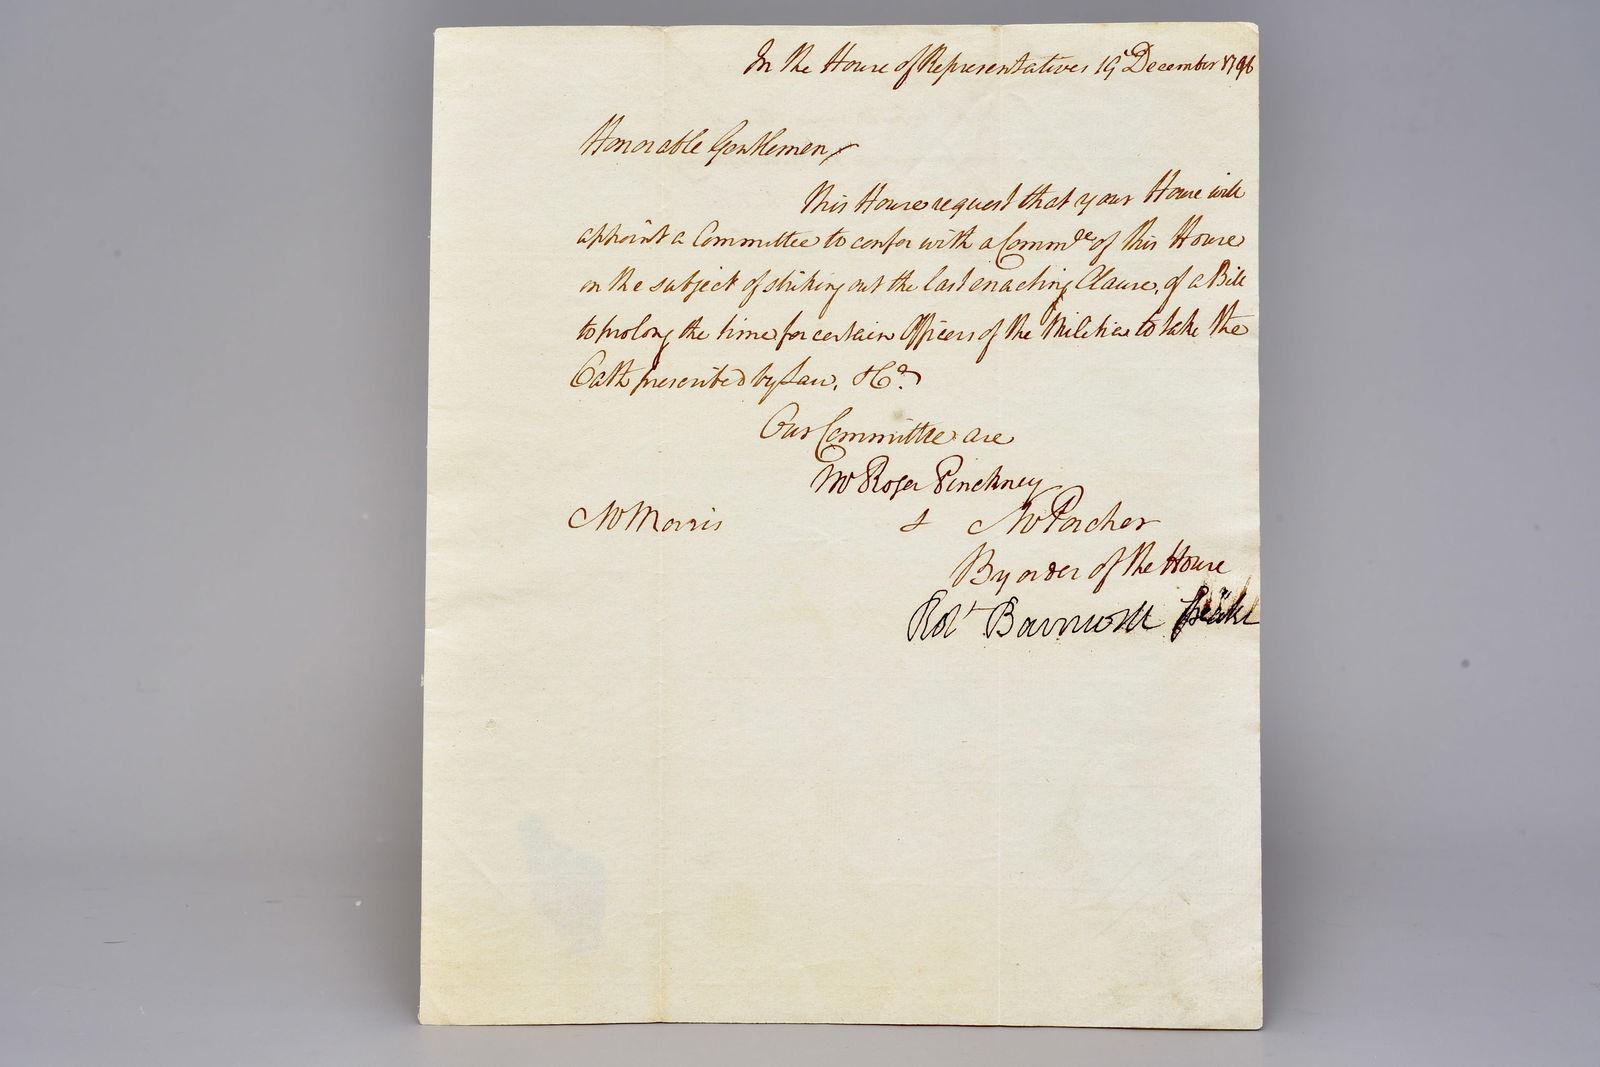 In the House of Representatives 19th December 1796
Honorable Gentlemen,
This House request that your House will
appoint a Committee to confer with a Commee of this House
on the subject of striking out the last enacting Clause, of a Bill
to prolong the time for certain Officers of the Militia to take the
Oath prescribed by Law, &ca
Our Committee are
Mr Roger Pinckney
Mr Morris & Mr Porcher
By order of the House
Robt Barnwell Speaker